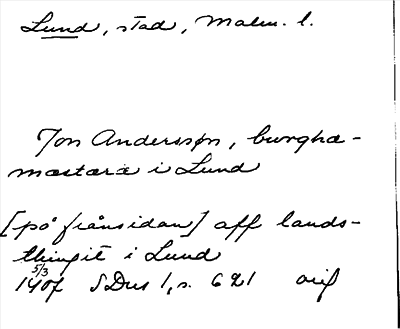 Lund, stad, Malm. l.
Jon Anderssøn, burghæ-
mæstaræ i Lund
[på frånsidan] aff lands-
thingit i Lund
5/3
1407 SDns 1, s. 621 orig